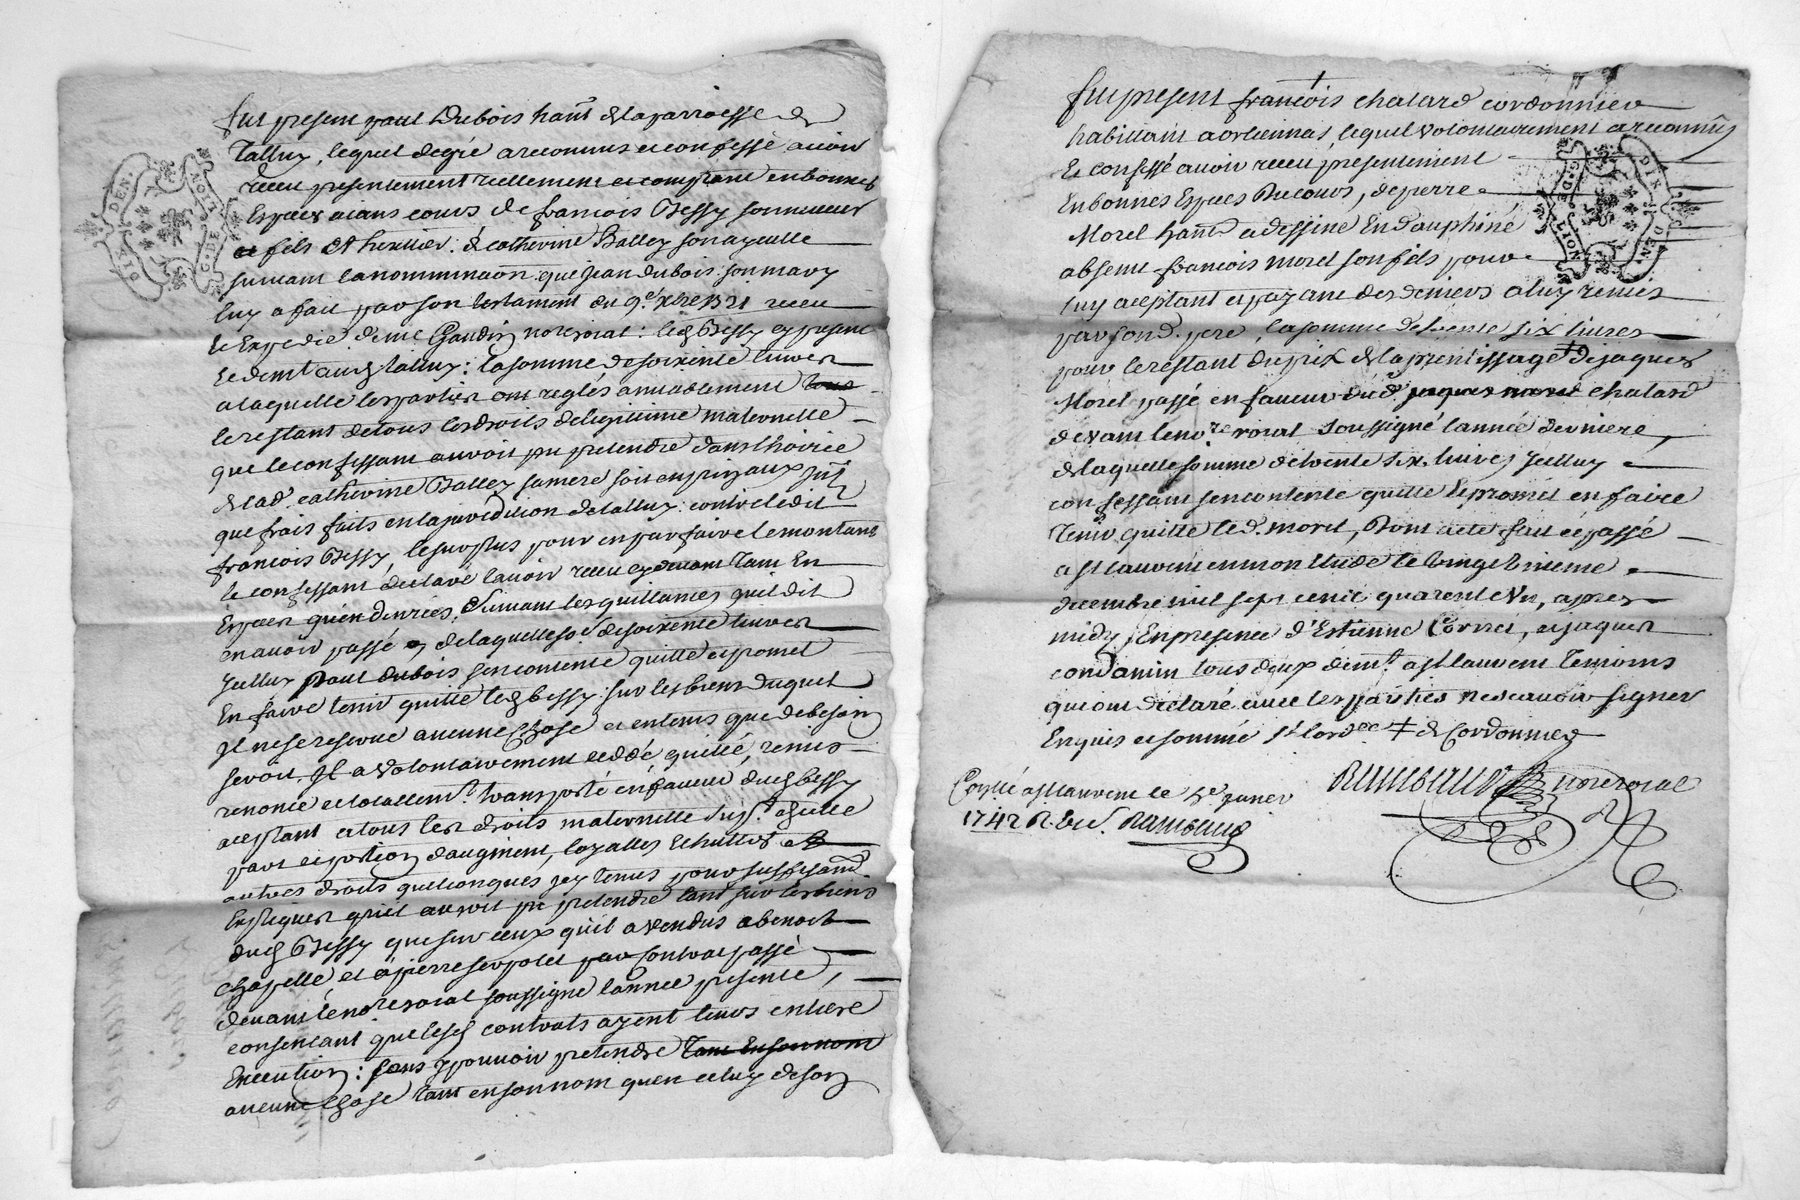 fut present paul Dubois hant de la parroesse de
Talluy, lequel de gré a reconnus et confessé avoir
receu presentement reellement et comptant en bonnes
Espèces aians cours de francois Bessy son neveur
et fils et heritier de catherine Balley son ayeulle
suivant la nomination que jean dubois son mary
luy a fait par son testament du receu
et Expedié de me Gaudin no.re roial: led Bessy cy present
et demt aud talluy: la somme de soixente livres
a laquelle les parties ont reglés amiablement tous
le restant de tous les droits de legitime maternelle
que le confessant auroit pu pretendre dans l'hoirie
de lad catherine Balley sa mere soit en principaux
que frais faits en la poursuite de celluy contre ledit
francois Bessy, le surplus pour en parfaire le montant
le confessant declaré l'avoir receu cy devant tant En
Espèces qu'en denrées, suivant les quittances qu'il dit
en avoir passé, de laquelle so.e de soixente livres
jcelluy paul dubois sen contente quitte et promet
En faire tenir quitte led bessy: sur les biens duquel
Il ne se reserve aucune chose et en temps que de besoin
seroit, Il a volontairement ceddé, quitté, remis
renoncé et totallemt. transporté en faveur dud bessy
aceptant et tous les droits maternelle
part et portion d'augment, loyalles Echuttes et
autres droits quelconques
Expliquer qu'il auroit pu pretendre tant sur les biens
dud Bessy que sur ceux qu'il a vendus a benoit
chapelle, et a pierre par contrat passé
devant le no.re roial soussigné l'année presente,
consentant que lesd contrats ayent leurs entiere
Execution: sans y pouvoir pretendre tant En son nom
aucune chose tant en son nom qu'en celuy de son
DIX DEN.
G. DE LION
fut present francois chatard cordonnier
habittant a orliennas, lequel volontairement a reconnus
Et confessé avoir receu presentement
En bonnes Espèces Du cours, de pierre
Morel hant a dessine En dauphiné
absent francois morel son fils pour
luy aceptant et payant des deniers a luy remis
par sond. pere, la somme de trente six livres
pour le restant du prix de laprentissage de jaques
Morel passé en faveur dud jaques morel chatard
devant le no.re roial soussigné l'année derniere,
de laquelle somme de trente six livres jcelluy
confessant sen contente quitte et promet en faire
tenir quitte led. morel, Dont acte fait et passé
a st laurent en mon Etude le vingt nieme
decembre mil sept cent quarente Un, apres
midy, En presence d'Estienne Cornet, et jaques
condamin tous deux demt. a st laurent temoins
qui ont declaré avec les parties ne scavoir signer
Enquis et sommé st lordce + de Cordonnier
Raimbaud no.re roial
Con.llé a st laurent le 5e janer
1742 R. Raimbaud
DIX DEN.
G. DE LION